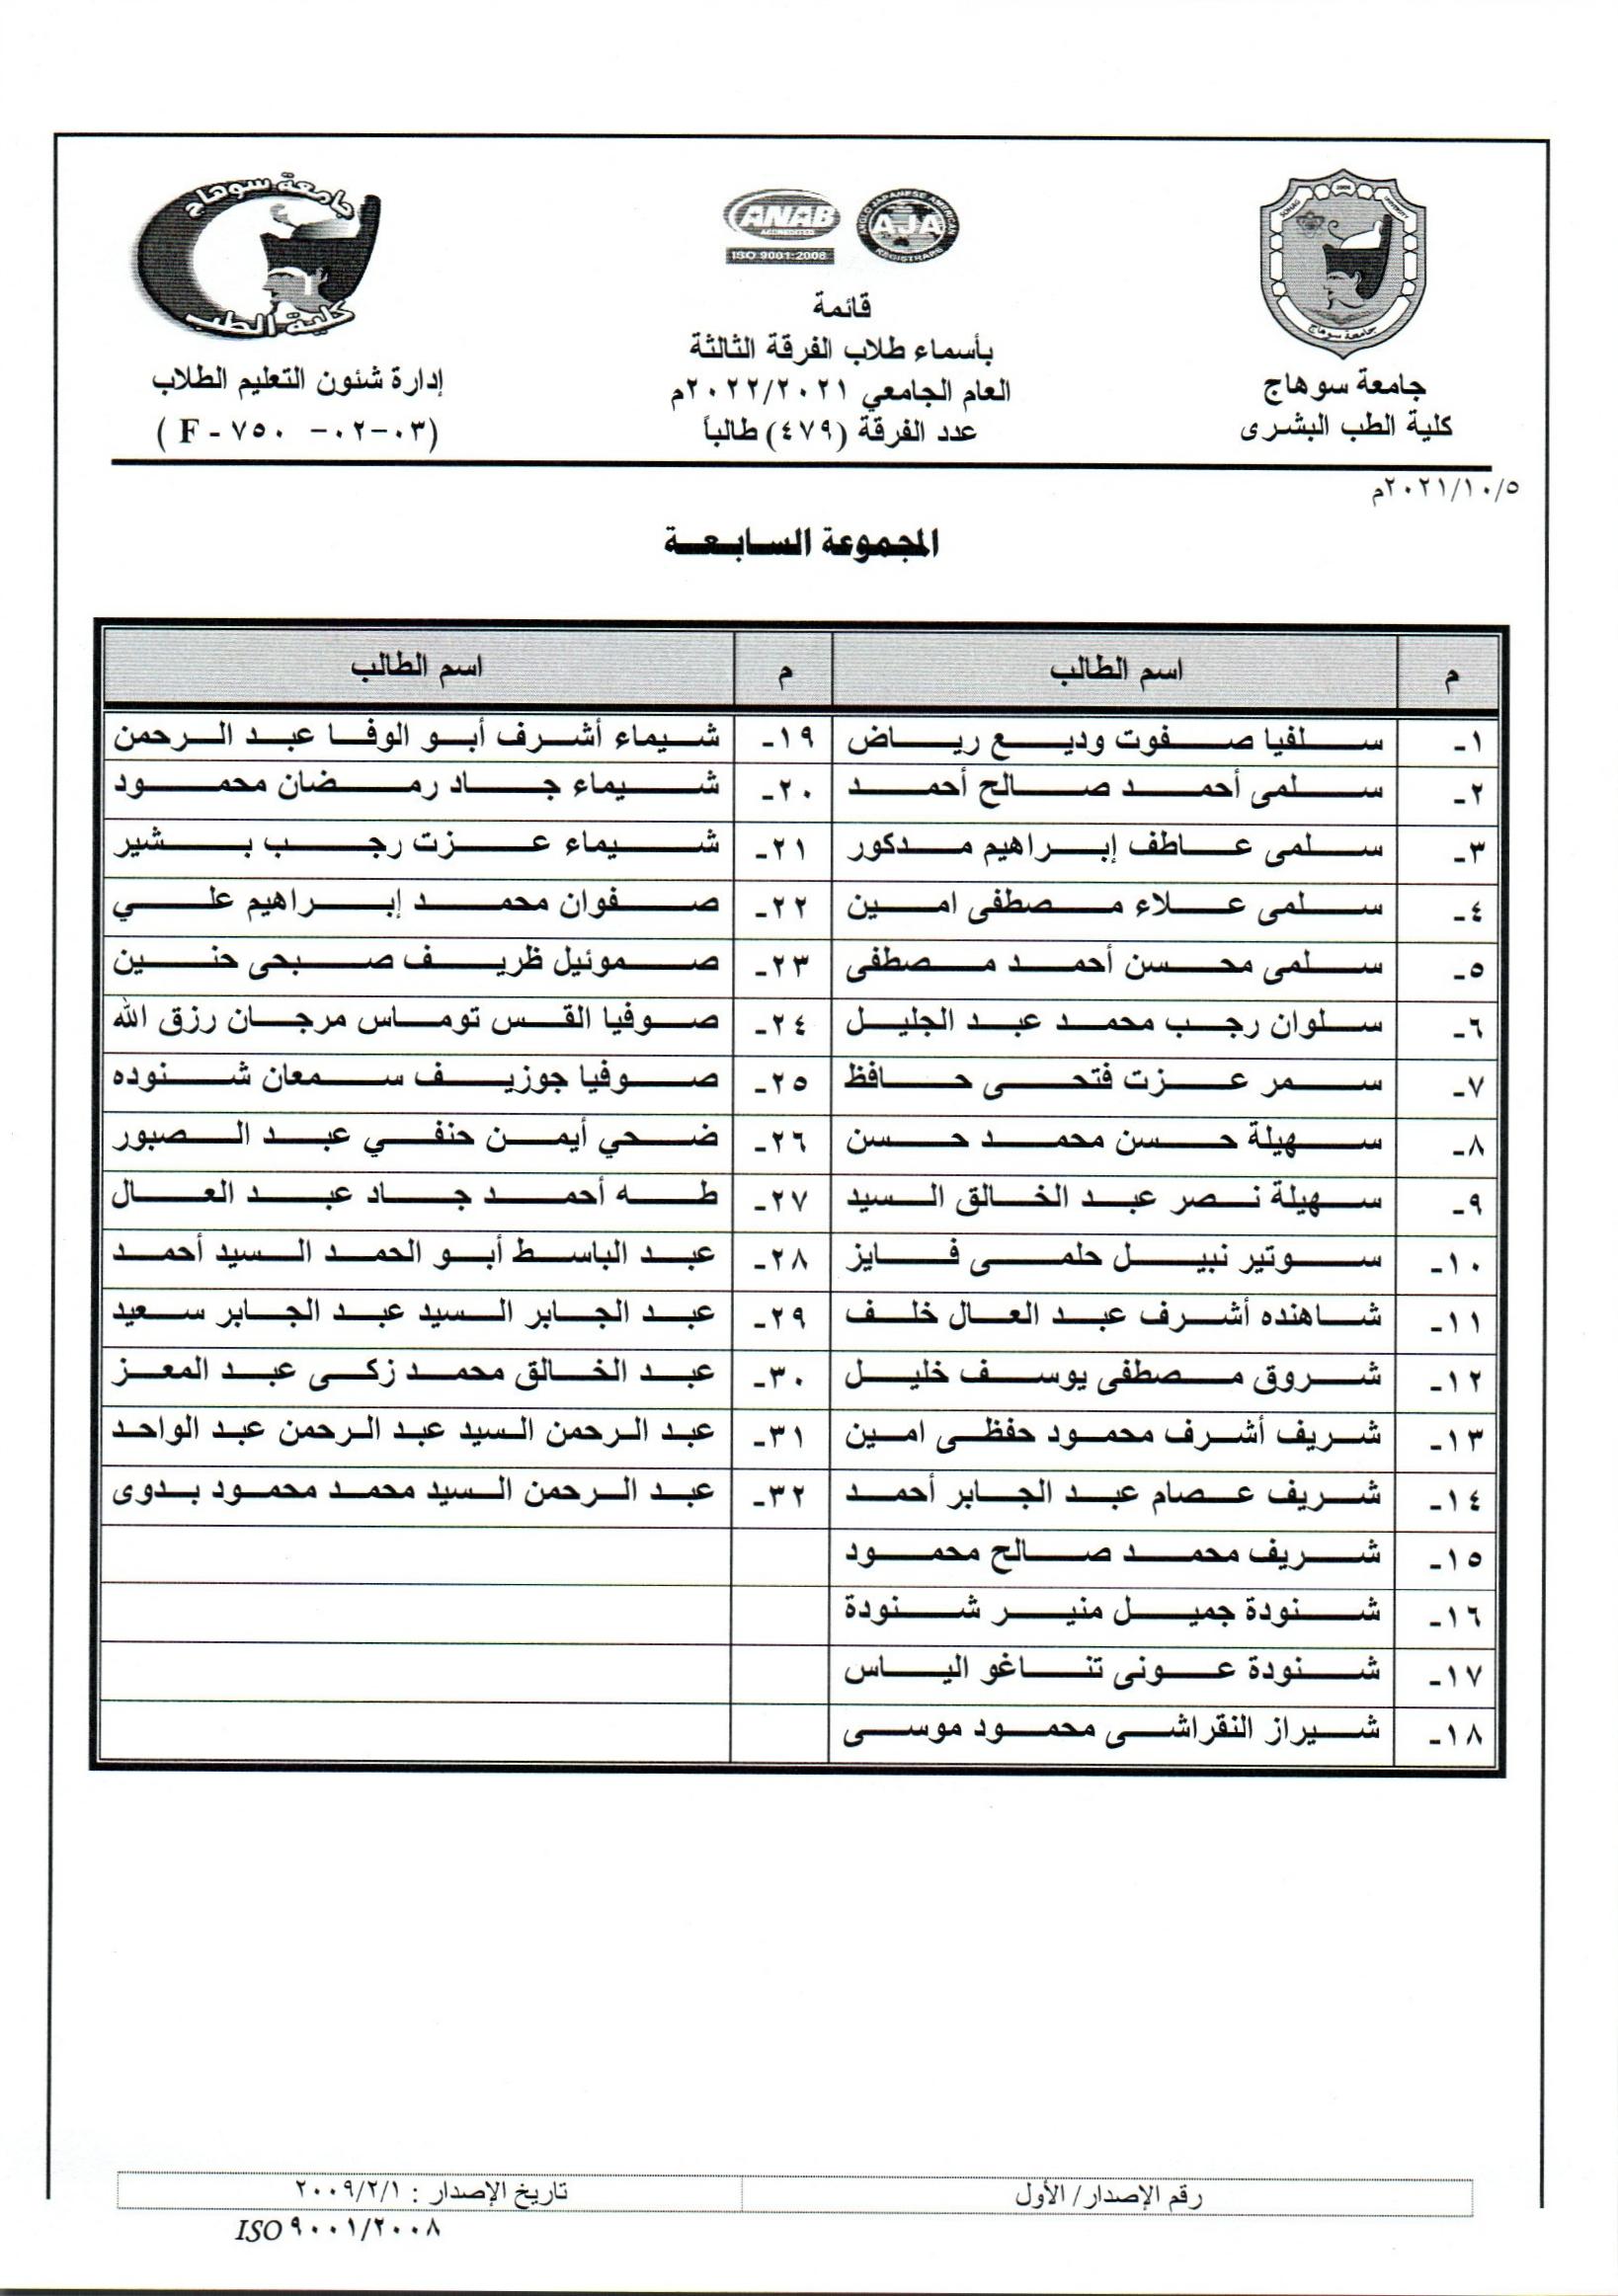 جامعة سوهاج
كلية الطب
ANAB
ACCREDITED
ISO 9001:2008
ANGLO JAPANESE AMERICAN
AJA
REGISTRARS
SOHAG UNIVERSITY
جامعة سوهاج
جامعة سوهاج
كلية الطب البشرى
قائمة
بأسماء طلاب الفرقة الثالثة
العام الجامعي ٢٠٢٢/٢٠٢١م
عدد الفرقة (٤٧٩) طالباً
إدارة شئون التعليم الطلاب
(F - ٧٥٠ -٠٢-٠٣)
٢٠٢١/١٠/٥م
المجموعة السابعة
م اسم الطالب م اسم الطالب
١- سلفيا صفوت وديع رياض ١٩- شيماء أشرف أبو الوفا عبد الرحمن
٢- سلمى أحمد صالح أحمد ٢٠- شيماء جاد رمضان محمود
٣- سلمى عاطف إبراهيم مدكور ٢١- شيماء عزت رجب بشير
٤- سلمى علاء مصطفى امين ٢٢- صفوان محمد إبراهيم علي
٥- سلمى محسن أحمد مصطفى ٢٣- صموئيل ظريف صبحى حنين
٦- سلوان رجب محمد عبد الجليل ٢٤- صوفيا القس توماس مرجان رزق الله
٧- سمر عزت فتحى حافظ ٢٥- صوفيا جوزيف سمعان شنوده
٨- سهيلة حسن محمد حسن ٢٦- ضحي أيمن حنفي عبد الصبور
٩- سهيلة نصر عبد الخالق السيد ٢٧- طه أحمد جاد عبد العال
١٠- سوتير نبيل حلمى فايز ٢٨- عبد الباسط أبو الحمد السيد أحمد
١١- شاهنده أشرف عبد العال خلف ٢٩- عبد الجابر السيد عبد الجابر سعيد
١٢- شروق مصطفى يوسف خليل ٣٠- عبد الخالق محمد زكى عبد المعز
١٣- شريف أشرف محمود حفظى امين ٣١- عبد الرحمن السيد عبد الرحمن عبد الواحد
١٤- شريف عصام عبد الجابر أحمد ٣٢- عبد الرحمن السيد محمد محمود بدوى
١٥- شريف محمد صالح محمود
١٦- شنودة جميل منير شنودة
١٧- شنودة عونى تناغو الياس
١٨- شيراز النقراشى محمود موسى
رقم الإصدار/ الأول تاريخ الإصدار : ٢٠٠٩/٢/١
ISO ٩٠٠١/٢٠٠٨